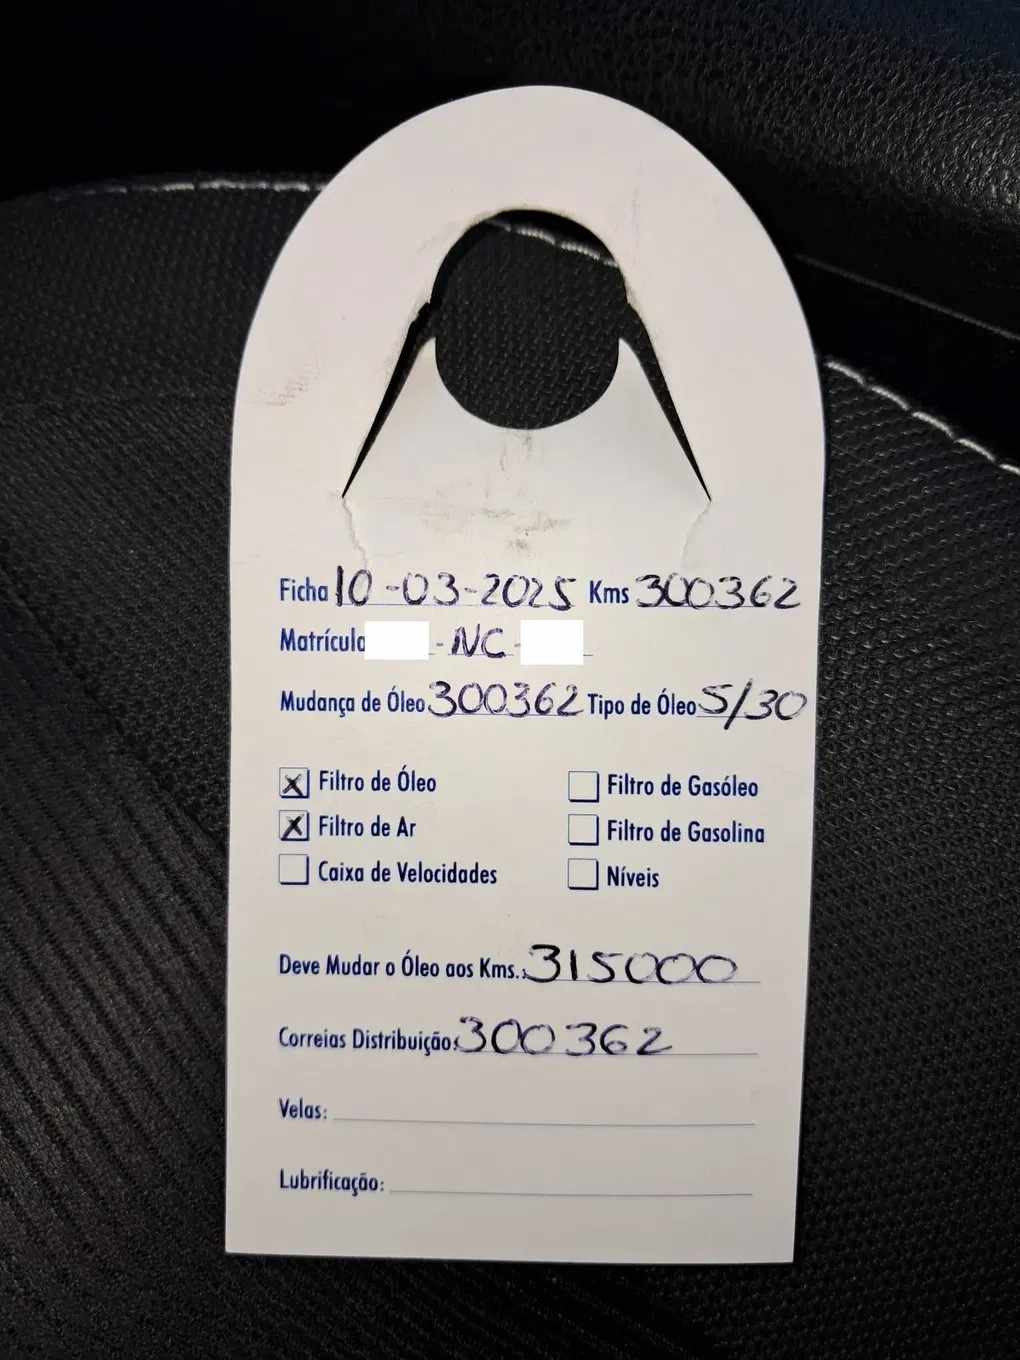 Ficha 10-03-2025 Kms 300362
Matrícula - NC -
Mudança de Óleo 300362 Tipo de Óleo 5/30
X Filtro de Óleo Filtro de Gasóleo
X Filtro de Ar Filtro de Gasolina
Caixa de Velocidades Níveis
Deve Mudar o Óleo aos Kms.: 315000
Correias Distribuição: 300362
Velas:
Lubrificação: